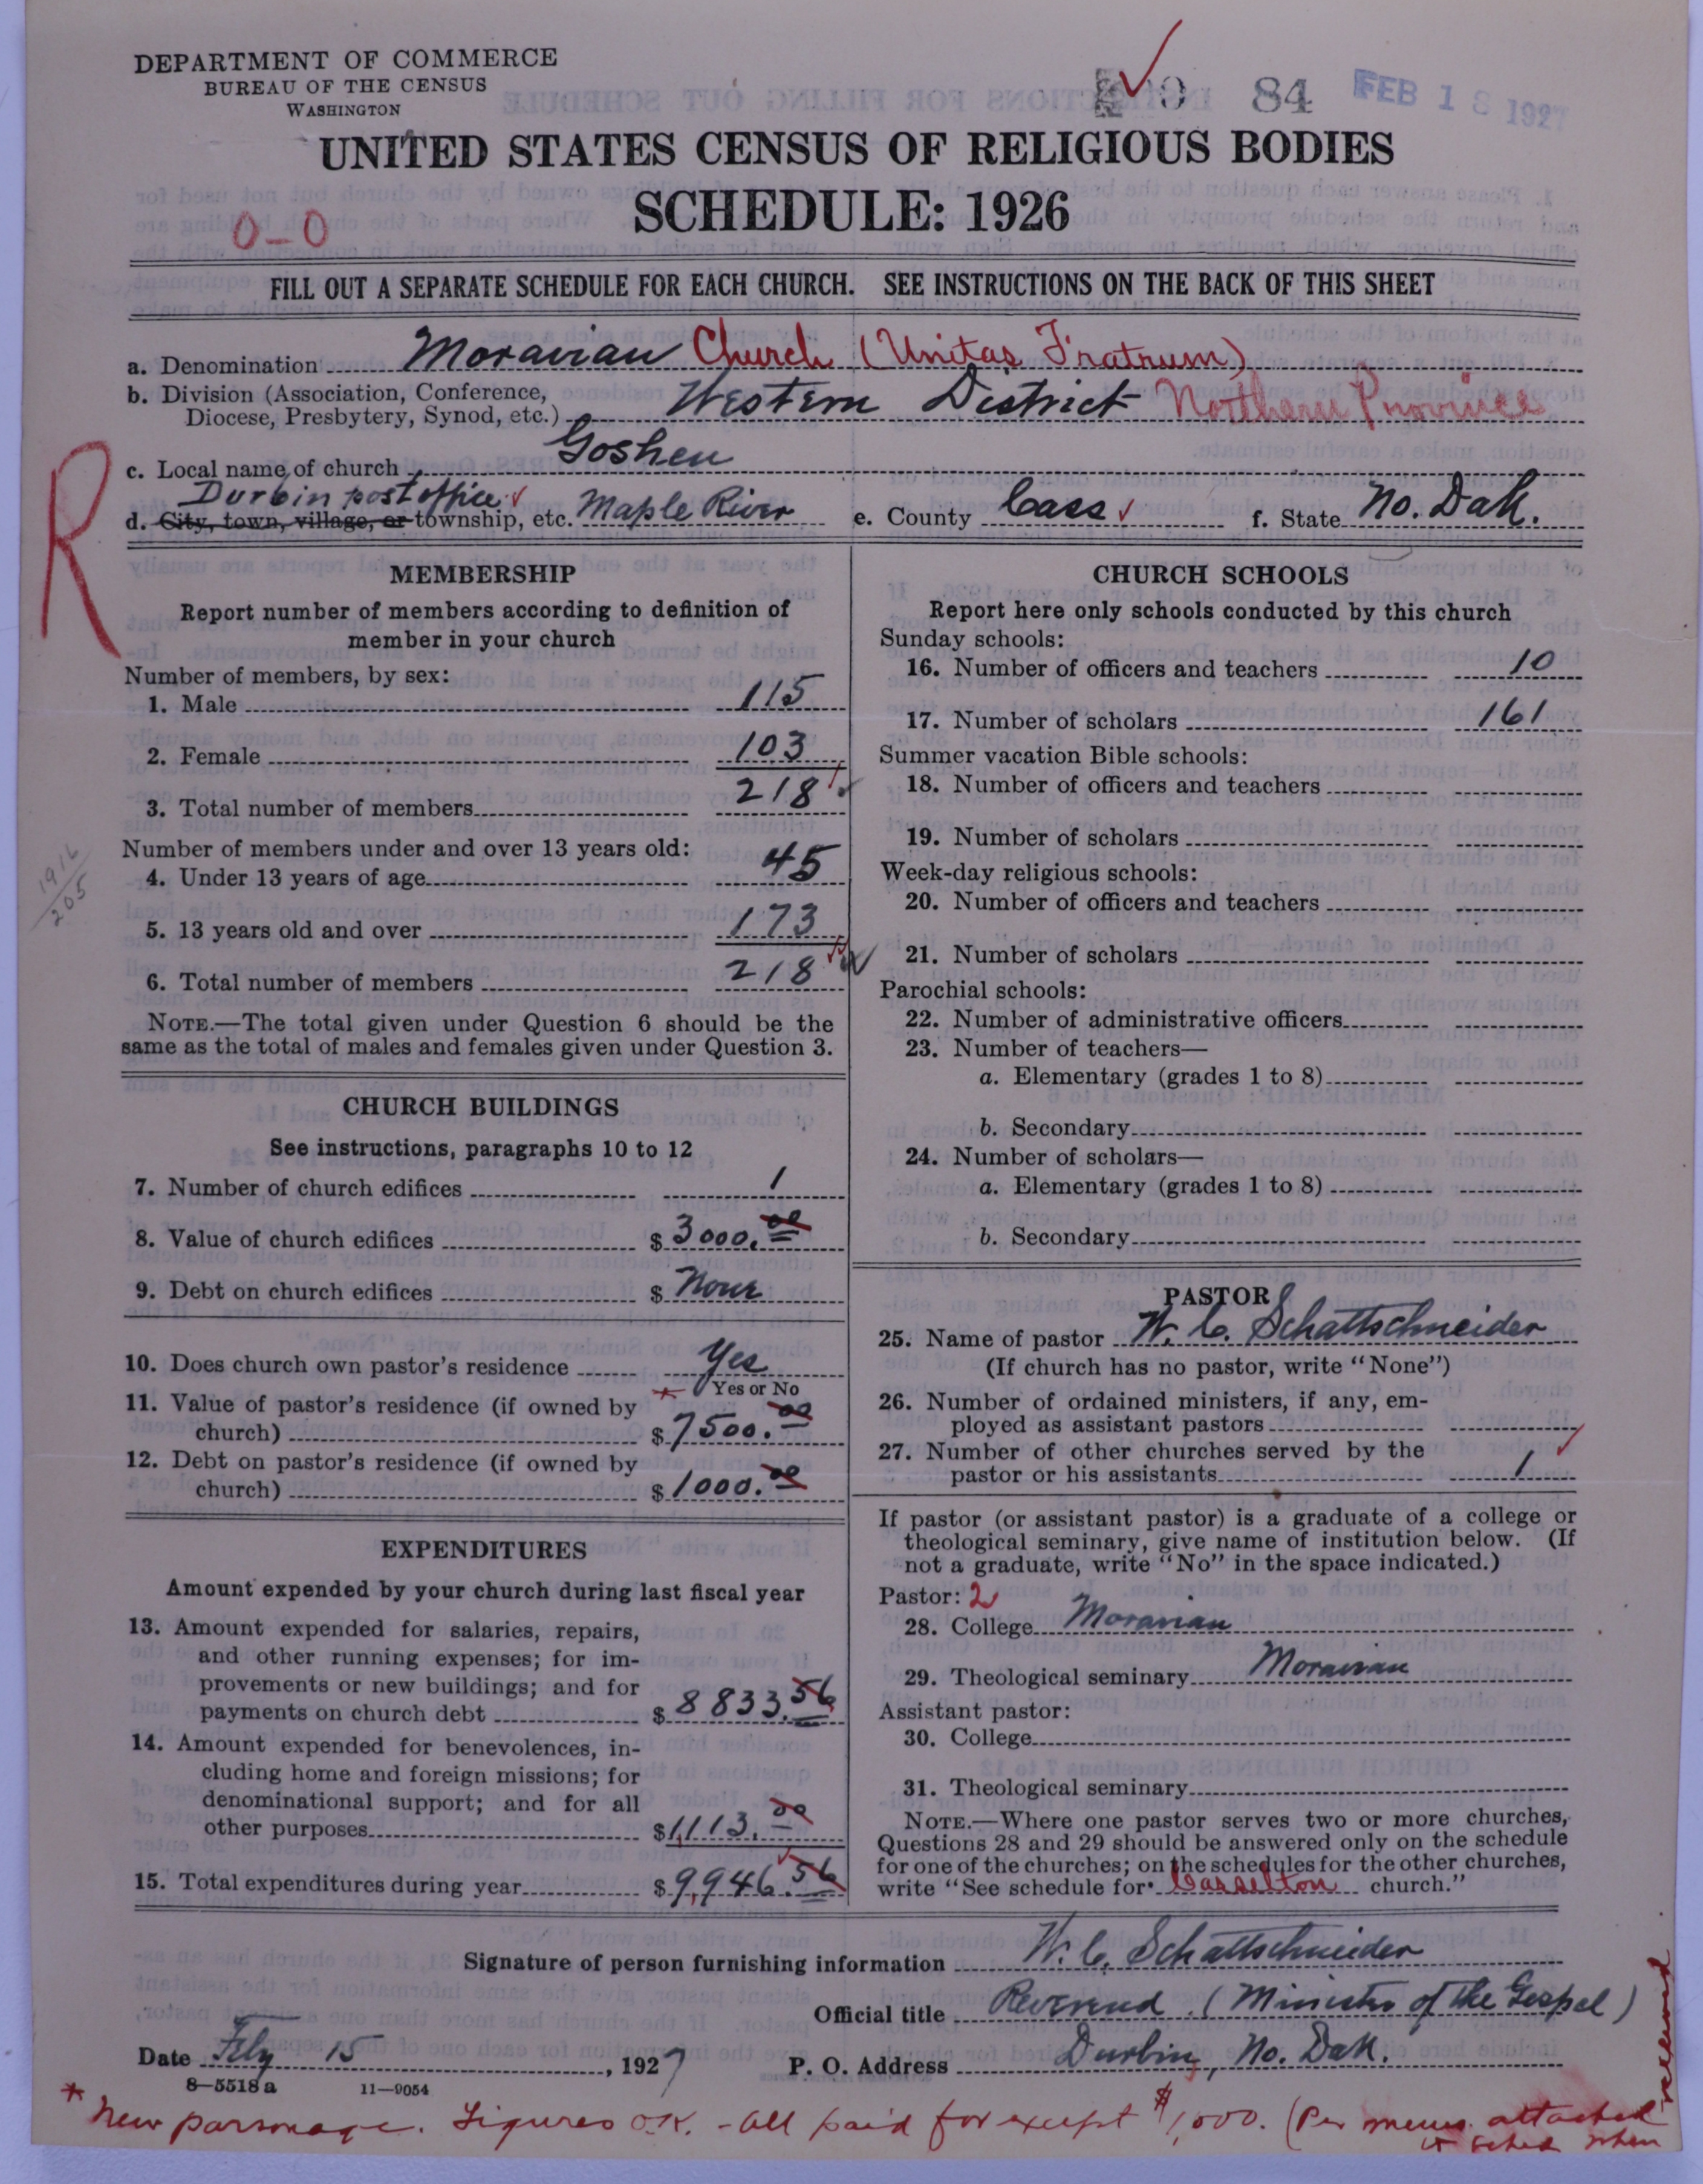 DEPARTMENT OF COMMERCE
BUREAU OF THE CENSUS
WASHINGTON
84 FEB 18 1927
UNITED STATES CENSUS OF RELIGIOUS BODIES
SCHEDULE: 1926
0-0
FILL OUT A SEPARATE SCHEDULE FOR EACH CHURCH. SEE INSTRUCTIONS ON THE BACK OF THIS SHEET
a. Denomination Moravian Church (Unitas Fratrum)
b. Division (Association, Conference,
Diocese, Presbytery, Synod, etc.) Western District Northern Province
c. Local name of church Goshen
Durbin post office
d. City, town, village, or township, etc. Maple River e. County Cass f. State No. Dak.
R
MEMBERSHIP
Report number of members according to definition of
member in your church
Number of members, by sex:
1. Male 115
2. Female 103
3. Total number of members 218
Number of members under and over 13 years old:
4. Under 13 years of age 45
1916
205
5. 13 years old and over 173
6. Total number of members 218
NOTE.—The total given under Question 6 should be the
same as the total of males and females given under Question 3.
CHURCH BUILDINGS
See instructions, paragraphs 10 to 12
7. Number of church edifices 1
8. Value of church edifices $ 3000.00
9. Debt on church edifices $ None
10. Does church own pastor's residence Yes
* Yes or No
11. Value of pastor's residence (if owned by
church) $ 7500.00
12. Debt on pastor's residence (if owned by
church) $ 1000.00
EXPENDITURES
Amount expended by your church during last fiscal year
13. Amount expended for salaries, repairs,
and other running expenses; for im-
provements or new buildings; and for
payments on church debt $ 8833.56
14. Amount expended for benevolences, in-
cluding home and foreign missions; for
denominational support; and for all
other purposes $ 1,113.00
15. Total expenditures during year $ 9,946.56
CHURCH SCHOOLS
Report here only schools conducted by this church
Sunday schools:
16. Number of officers and teachers 10
17. Number of scholars 161
Summer vacation Bible schools:
18. Number of officers and teachers
19. Number of scholars
Week-day religious schools:
20. Number of officers and teachers
21. Number of scholars
Parochial schools:
22. Number of administrative officers
23. Number of teachers—
a. Elementary (grades 1 to 8)
b. Secondary
24. Number of scholars—
a. Elementary (grades 1 to 8)
b. Secondary
PASTOR
25. Name of pastor W. C. Schattschneider
(If church has no pastor, write "None")
26. Number of ordained ministers, if any, em-
ployed as assistant pastors
27. Number of other churches served by the
pastor or his assistants 1
If pastor (or assistant pastor) is a graduate of a college or
theological seminary, give name of institution below. (If
not a graduate, write "No" in the space indicated.)
Pastor: 2
28. College Moravian
29. Theological seminary Moravian
Assistant pastor:
30. College
31. Theological seminary
NOTE.—Where one pastor serves two or more churches,
Questions 28 and 29 should be answered only on the schedule
for one of the churches; on the schedules for the other churches,
write "See schedule for Casselton church."
Signature of person furnishing information W. C. Schattschneider
Official title Reverend (Minister of the Gospel)
Date Feby 15, 1927 P. O. Address Durbin, No. Dak.
8—5518 a 11—9054
* New parsonage. Figures O.K. - All paid for except $1,000. (Per memo. attached
to sched when
received